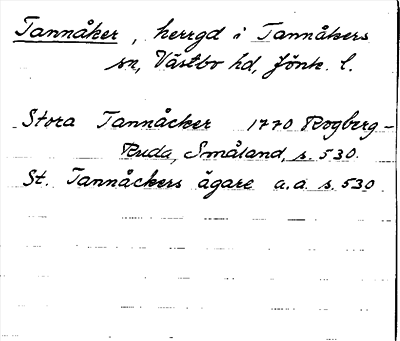 Tannåker, herrgd i Tannåkers
sn, Västbo hd, Jönk. l.
Stora Tannåcker 1770 Rogberg-
Ruda, Småland, s. 530.
St. Tannåckers ägare a.a. s. 530.